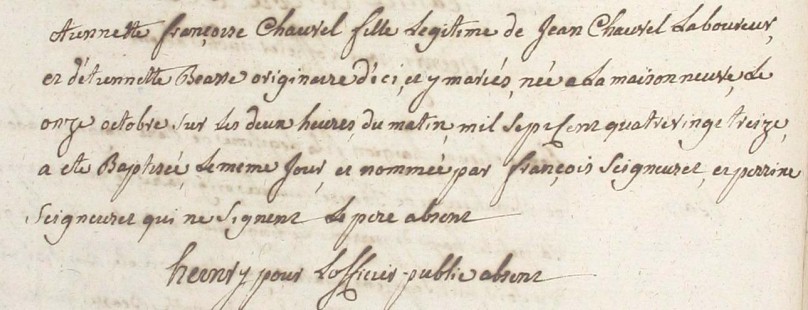 etiennette françoise Chauvel fille Legitime de Jean Chauvel Laboureur,
et d'étiennette Beasse originaire d'ici, et y mariés, née a La maison neuve, Le
onze octobre sur les deux heures, du matin, mil sept Cent quatrevingt treize,
a ete Baptisée, Le meme Jour, et nommée par françois Seigneuret, et perrine
Seigneuret qui ne Signent Le pere absent
henry pour Lofficier public absent